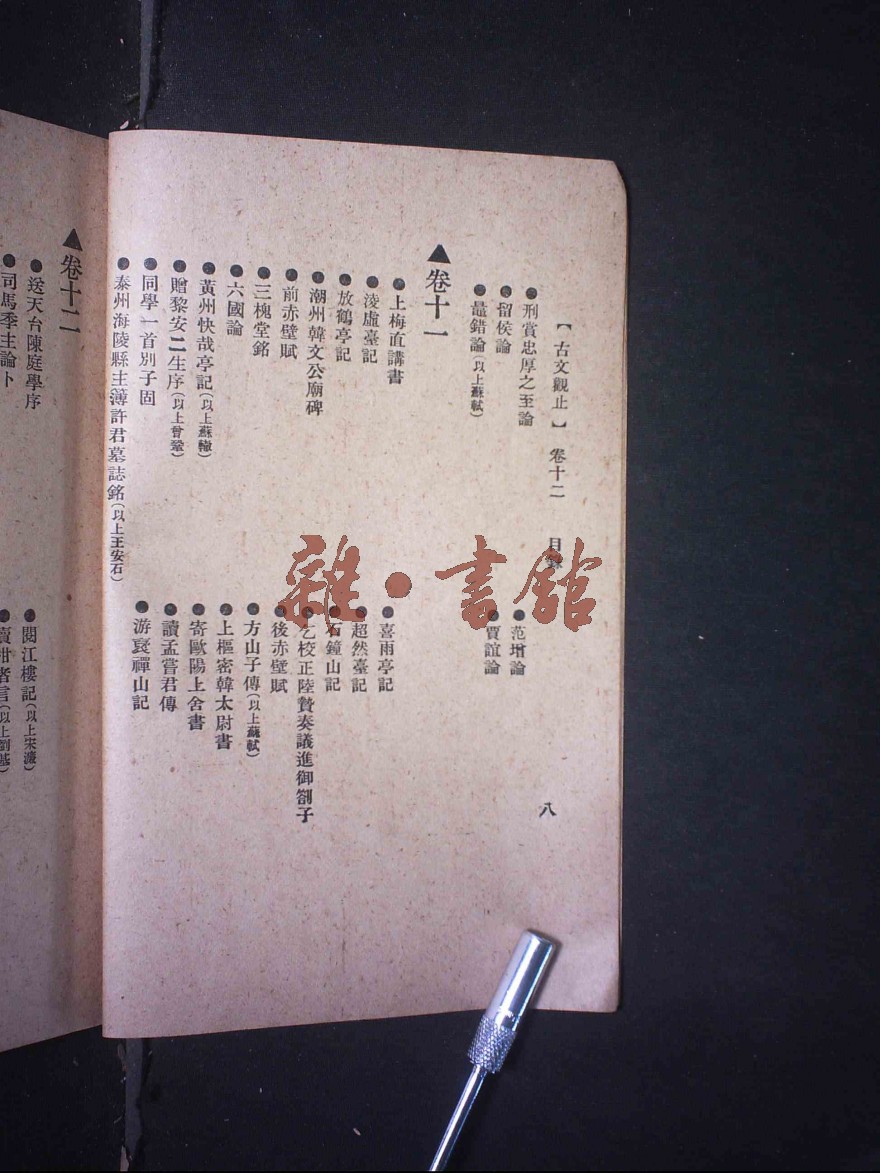 【古文觀止】 卷十二 目錄 八
●刑賞忠厚之至論 ●范增論
●留侯論 ●賈誼論
●鼂錯論(以上蘇軾)
▲卷十一
●上梅直講書 ●喜雨亭記
●淩虛臺記 ●超然臺記
●放鶴亭記 ●石鐘山記
●潮州韓文公廟碑 ●乞校正陸贄奏議進御劄子
●前赤壁賦 ●後赤壁賦
●三槐堂銘 ●方山子傳(以上蘇軾)
●六國論 ●上樞密韓太尉書
●黃州快哉亭記(以上蘇轍) ●寄歐陽上舍書
●贈黎安二生序(以上曾鞏) ●讀孟嘗君傳
●同學一首別子固 ●游褒禪山記
●泰州海陵縣主簿許君墓誌銘(以上王安石)
▲卷十二
●送天台陳庭學序 ●閱江樓記(以上宋濂)
●司馬季主論卜 ●賣柑者言(以上劉基)
雜·書館